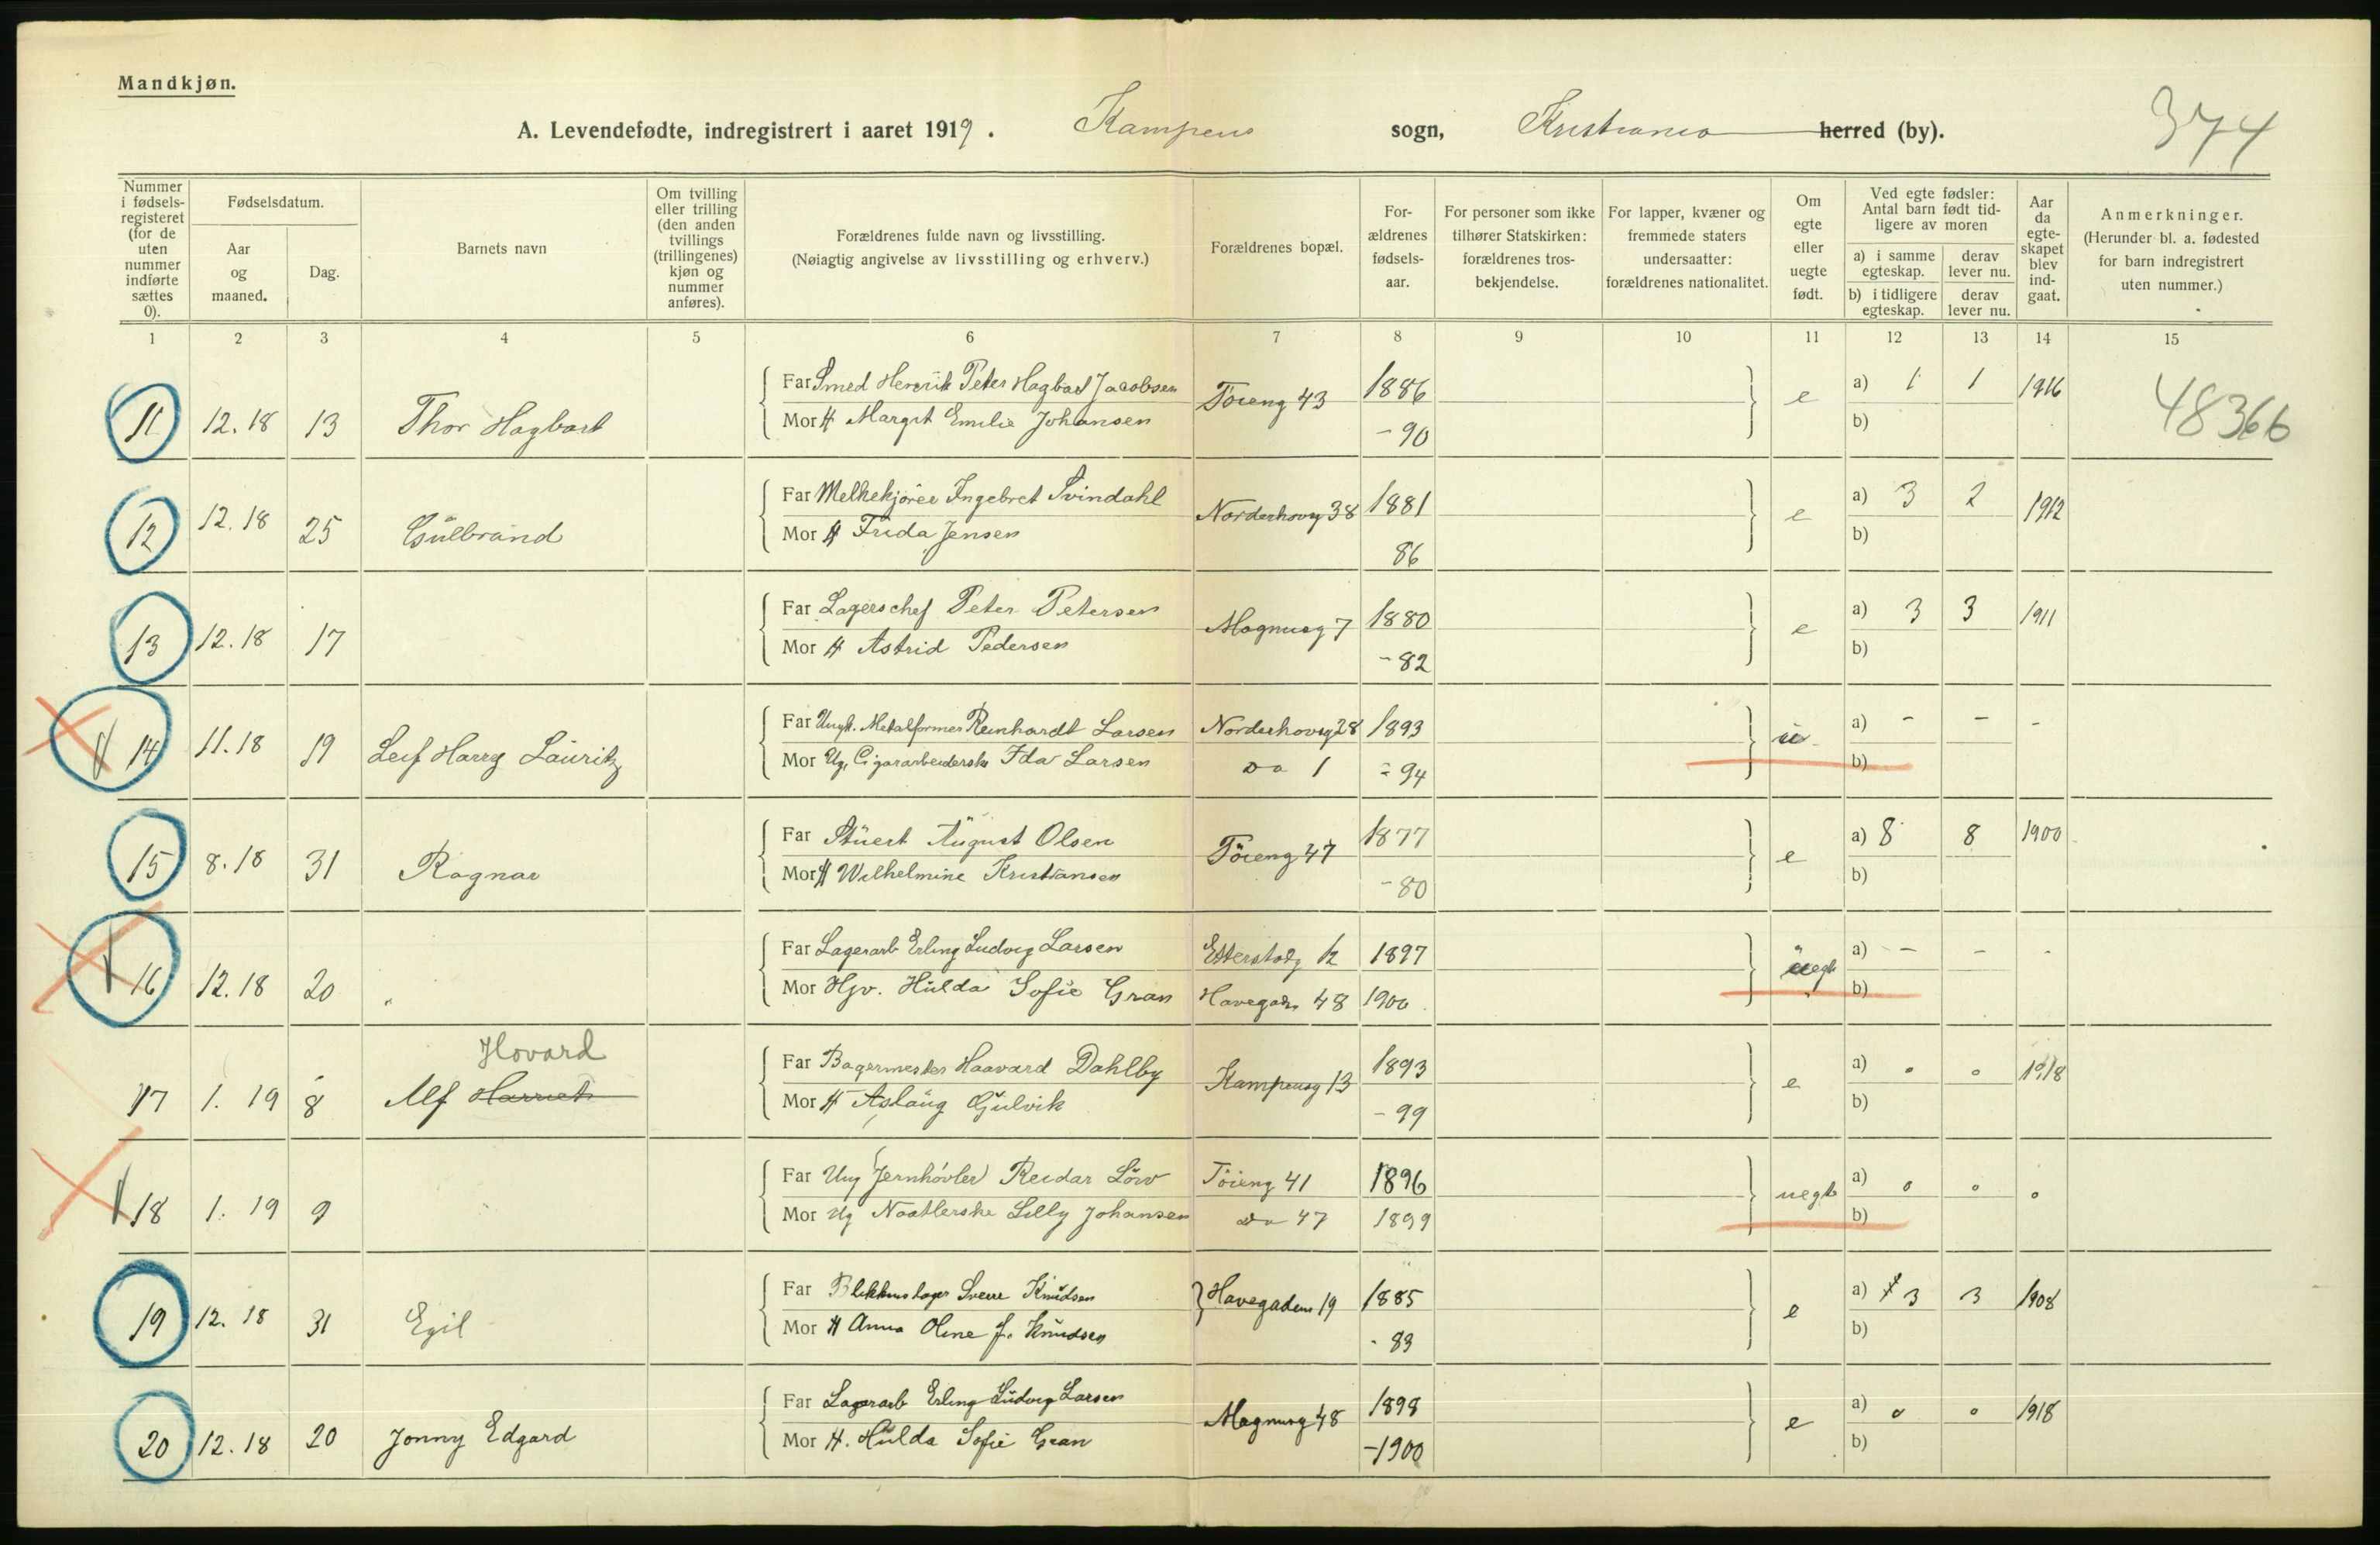 Mandkjøn.
A. Levendefødte, indregistrert i aaret 1919. Kampens sogn, Kristiania herred (by).
374
Nummer i fødsels-registeret (for de uten nummer indførte sættes 0).
Fødselsdatum.
Aar og maaned.
Dag.
Barnets navn
Om tvilling eller trilling (den anden tvillings (trillingenes) kjøn og nummer anføres).
Forældrenes fulde navn og livsstilling.
(Nøiagtig angivelse av livsstilling og erhverv.)
Forældrenes bopæl.
For-ældrenes fødsels-aar.
For personer som ikke tilhører Statskirken: forældrenes tros-bekjendelse.
For lapper, kvæner og fremmede staters undersaatter: forældrenes nationalitet.
Om egte eller uegte født.
Ved egte fødsler: Antal barn født tid-ligere av moren
a) i samme egteskap. derav lever nu.
b) i tidligere egteskap. derav lever nu.
Aar da egte-skapet blev ind-gaat.
Anmerkninger.
(Herunder bl. a. fødested for barn indregistrert uten nummer.)
1 2 3 4 5 6 7 8 9 10 11 12 13 14 15
Far Smed Henrik Peter Hagbart Jacobsen 1886 a) 1 1 1916
11 12.18 13 Thor Hagbart Tøieng 43 e 48366
Mor H Margit Emilie Johansen -90 b)
Far Melkekjører Ingebret Svindahl 1881 a) 3 2
12 12.18 25 Gŭlbrand Norderhovg 38 e 1912
Mor H Frida Jensen 86 b)
Far Lagerschef Peter Petersen 1880 a) 3 3 1911
13 12.18 17 Magnusg 7 e
Mor H Astrid Pedersen -82 b)
Far Ungk. Metalformer Reinhardt Larsen Norderhovg 28 1893 a) - - -
14 11.18 19 Leif Harry Laŭritz u
Mor Ug. Cigararbeiderske Ida Larsen Do 1 -94 b)
Far Stŭert Aŭgust Olsen 1877 a) 8 8 1900
15 8.18 31 Ragnar Tøieng 47 e
Mor H Wilhelmine Kristiansen -80 b)
Far Lagerarb Erling Ludvig Larsen Etterstadg 12 1897 a) - - -
16 12.18 20 " uegte
Mor Hjv. Hŭlda Sofie Gran Havegaden 48 1900 b)
Hovard
Far Bagermester Haavard Dahlby 1893 a) 0 0 1918
17 1.19 8 Alf Harriet Kampensg 13 e
Mor H Aslaŭg Gŭlvik -99 b)
Far Ung Jernhøvler Reidar Löw Tøieng 41 1896 a) 0 0 0
18 1.19 9 uegte
Mor Ug Naatlerske Lilly Johansen Do 47 1899 b)
Far Blikkenslager Sverre Knŭdsen 1885 a) 3 3 1908
19 12.18 31 Egil Havegaden 19 e
Mor H Anna Oline J. Knŭdsen - 83 b)
Far Lagerarb Erling Lŭdvig Larsen 1898 a) 0 0 1918
20 12.18 20 Jonny Edgard Magnusg 48 e
Mor H. Hŭlda Sofie Gran -1900 b)